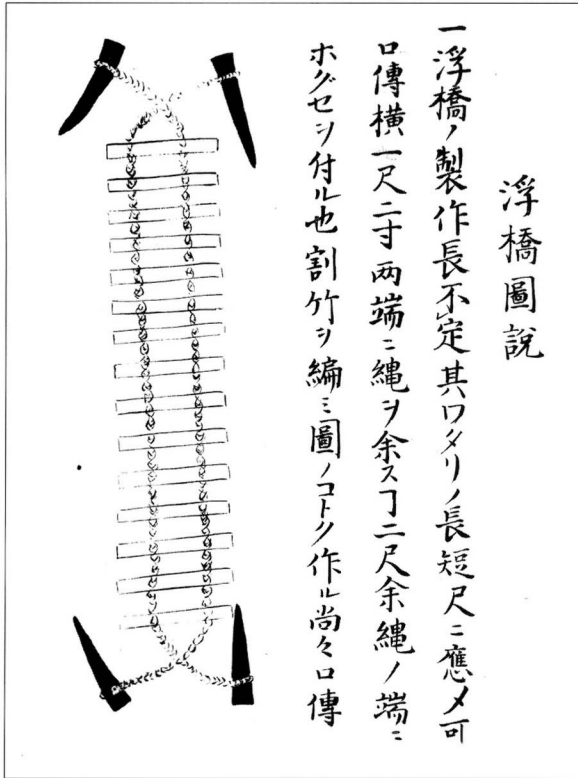 浮橋圖説
一浮橋ノ製作長不定其ワタリノ長短尺ニ應〆可
口傳横一尺二寸両端ニ縄ヲ余スヿ二尺余縄ノ端ニ
ホグセヲ付ル也割竹ヲ編ミ圖ノコトク作ル尚々口傳